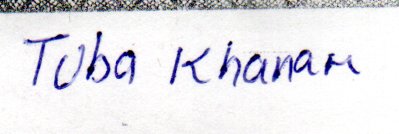 Tuba Khanam